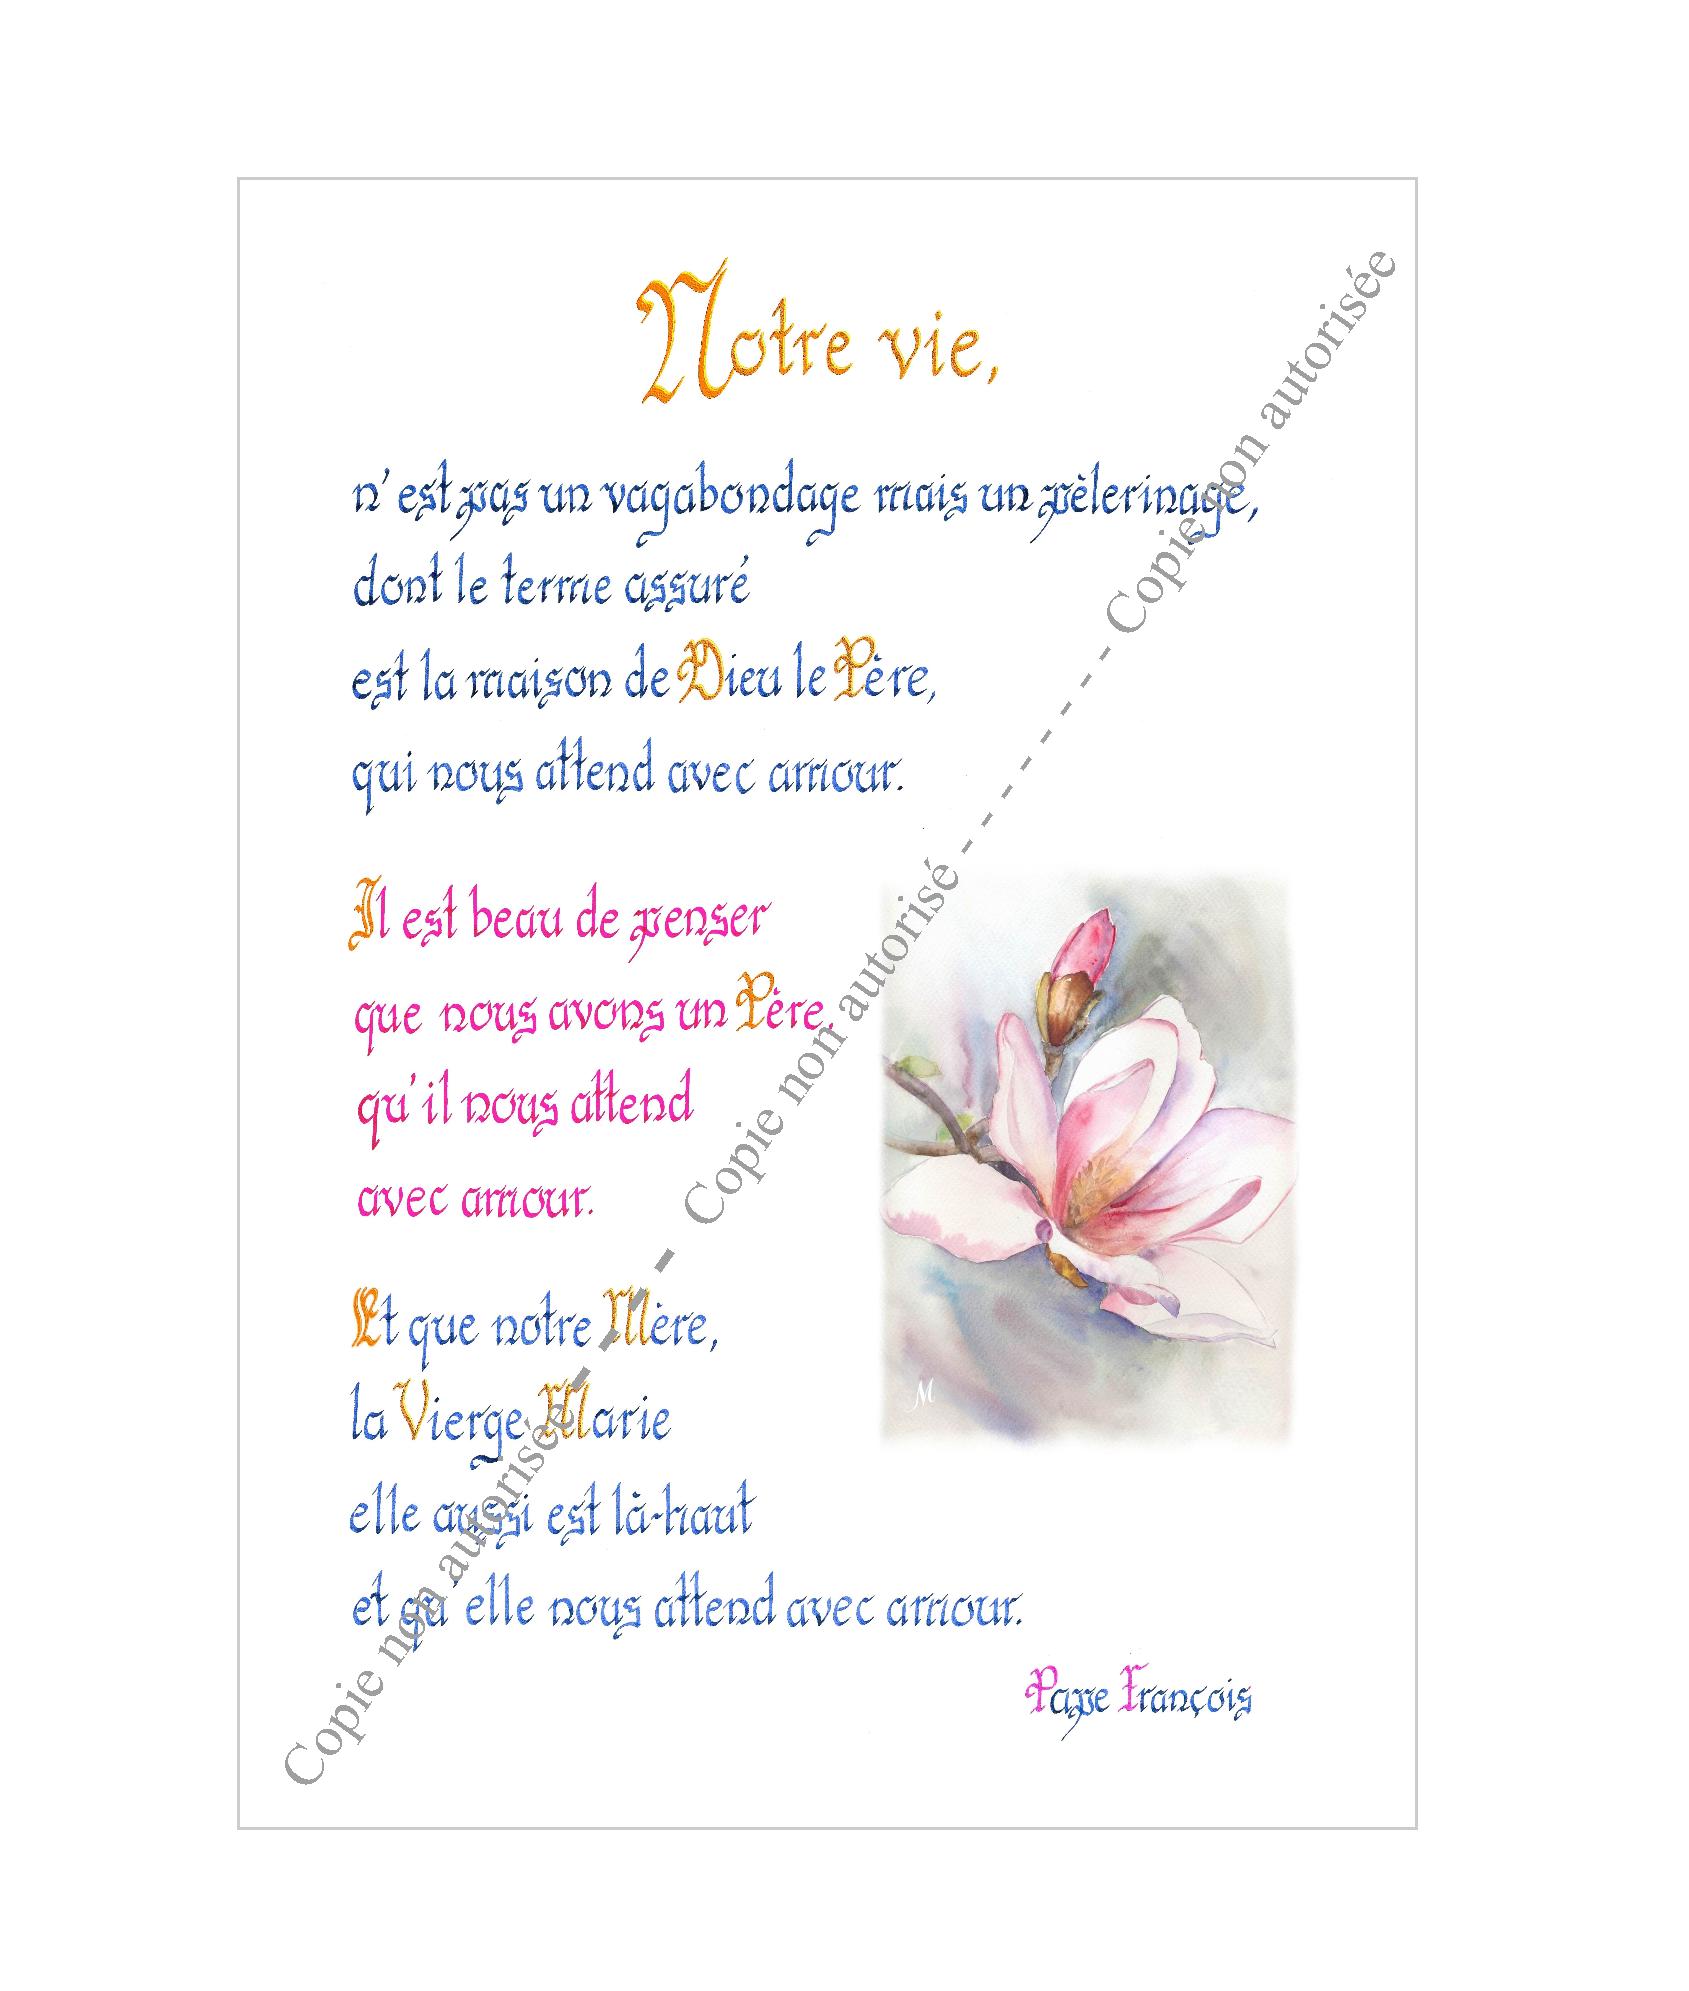 Notre vie,
n'est pas un vagabondage mais un pèlerinage,
dont le terme assuré
est la maison de Dieu le Père,
qui nous attend avec amour.
Il est beau de penser
que nous avons un Père,
qu'il nous attend
avec amour.
Et que notre Mère,
la Vierge Marie
elle aussi est là-haut
et qu'elle nous attend avec amour.
Pape François
M
Copie non autorisée - - Copie non autorisé - - - - - - - - - Copie non autorisée